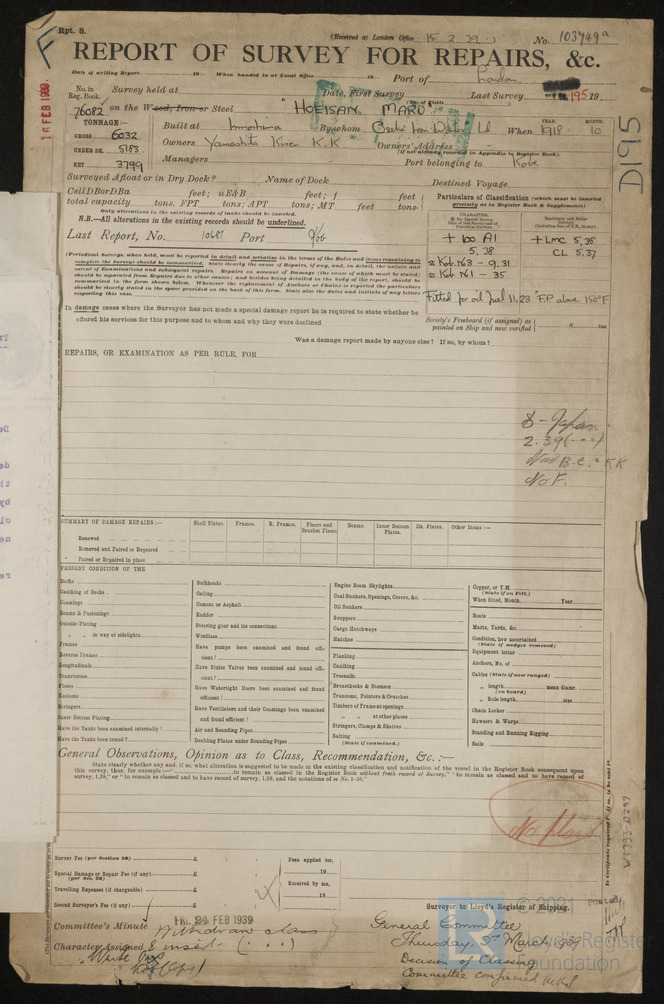 Rpt. 8.
(Received at London Office 15. 2. 39)
No. 103749a
F
REPORT OF SURVEY FOR REPAIRS, &c.
Date of writing Report 19 When handed in at Local Office 19 Port of London
No. in Reg. Book. Survey held at Date, First Survey Last Survey 19
(No. of Visits)
16 FEB 1939
76082 on the Wood, Iron or Steel "HOEISAN MARU"
D195
TONNAGE:—
GROSS 6032
UNDER DK. 5183
NET 3799
YEAR. MONTH.
Built at Innoshima By whom Osaka Iron Works Ld When 1918 10
Owners Yamashita Kisen K.K. Owners' Address
(if not already recorded in Appendix to Register Book).
Managers Port belonging to Kobe
Surveyed Afloat or in Dry Dock? Name of Dock Destined Voyage
CellDBorDBa feet; uE&B feet; f feet
total capacity tons. FPT tons; APT tons; MT feet tons.
Only alterations in the existing records of tanks should be inserted.
N.B.—All alterations in the existing records should be underlined.
Last Report, No. 10687 Port Kob
Particulars of Classification (which must be inserted precisely as in Register Book & Supplements)
+ 100 A1
5,38
ss Kob. No3 - 9,31
ss Kob. No1 - 35
+ LMC 5,38
CL 5,37
Fitted for oil fuel 11,23 F.P. above 150°F
(Periodical Surveys, when held, must be reported in detail and seriatim in the terms of the Rules and items remaining to complete the Surveys should be summarised. State clearly the cause of Repairs, if any, and, in detail, the nature and extent of Examinations and subsequent repairs. Repairs on account of Damage (the cause of which must be stated) should be separated from Repairs due to other causes; and besides being detailed in the body of the report, should be summarised in the form shown below. Whenever the replacement of Anchors or Chains is reported the particulars should be clearly stated in the space provided on the back of this form. State also the dates and initials of any letters respecting this case.
In damage cases where the Surveyor has not made a special damage report he is required to state whether he
offered his services for this purpose and to whom and why they were declined
Society's Freeboard (if assigned) as painted on Ship and now verified
Was a damage report made by anyone else? If so, by whom?
REPAIRS, OR EXAMINATION AS PER RULE, FOR
S - Japan
2.39
Now B.C. "KK
No F.
SUMMARY OF DAMAGE REPAIRS:— Shell Plates. Frames. R. Frames. Floors and Bracket Floors Beams. Inner Bottom Plates. Dk. Plates. Other Items:—
Renewed
Removed and Faired or Repaired
Faired or Repaired in place
PRESENT CONDITION OF THE
Decks
Caulking of Decks
Coamings
Beams & Fastenings
Outside Plating
" " in way of sidelights
Frames
Reverse Frames
Longitudinals
Transverses
Floors
Keelsons
Stringers
Inner Bottom Plating
Have the Tanks been examined internally?
Have the Tanks been tested?
Bulkheads
Ceiling
Cement or Asphalt
Rudder
Steering gear and its connections
Windlass
Have pumps been examined and found efficient?
Have Sluice Valves been examined and found efficient?
Have Watertight Doors been examined and found efficient?
Have Ventilators and their Coamings been examined and found efficient?
Air and Sounding Pipes
Doubling Plates under Sounding Pipes
Engine Room Skylights
Coal Bunkers, Openings, Covers, &c.
Oil Bunkers
Scuppers
Cargo Hatchways
Hatches
Planking
Caulking
Treenails
Breasthooks & Stemson
Transoms, Pointers & Crutches
Timbers of Frame at openings
" " at other places
Stringers, Clamps & Shelves
Salting
(State if examined.)
Copper, or Y.M.
(State if on Felt.)
When fitted, Month Year
Boats
Masts, Yards, &c.
Condition, how ascertained
(State if wedges removed)
Equipment letter
Anchors, No. of
Cables (State if now ranged)
" length mean diamr.
(on board)
" Rule length size
Chain Locker
Hawsers & Warps
Standing and Running Rigging
Sails
General Observations, Opinion as to Class, Recommendation, &c.:—
State clearly whether any and, if so, what alteration is suggested to be made in the existing classification and notification of the vessel in the Register Book consequent upon
this survey, thus, for example:—" to remain as classed in the Register Book without fresh record of Survey," "to remain as classed and to have record of
survey, 1,38," or "to remain as classed and to have record of survey, 1,38, and the notations of ss No. 1-38."
No plans
W1333-0297
Survey Fee (per Section 29) £ : : Fees applied for,
Special Damage or Repair Fee (if any) £ : : 19
(per Sec. 29)
Travelling Expenses (if chargeable) £ : : Received by me,
Second Surveyor's Fee (if any) £ : : 19
Surveyor to Lloyd's Register of Shipping.
© 2021
Lloyd's Register
Foundation
FRI. 24 FEB 1939
Committee's Minute Withdraw class
Character Assigned & insert (. . .)
Write Own
General Committee
Thursday, 2nd March, 1939
Decision of Classing
Committee confirmed